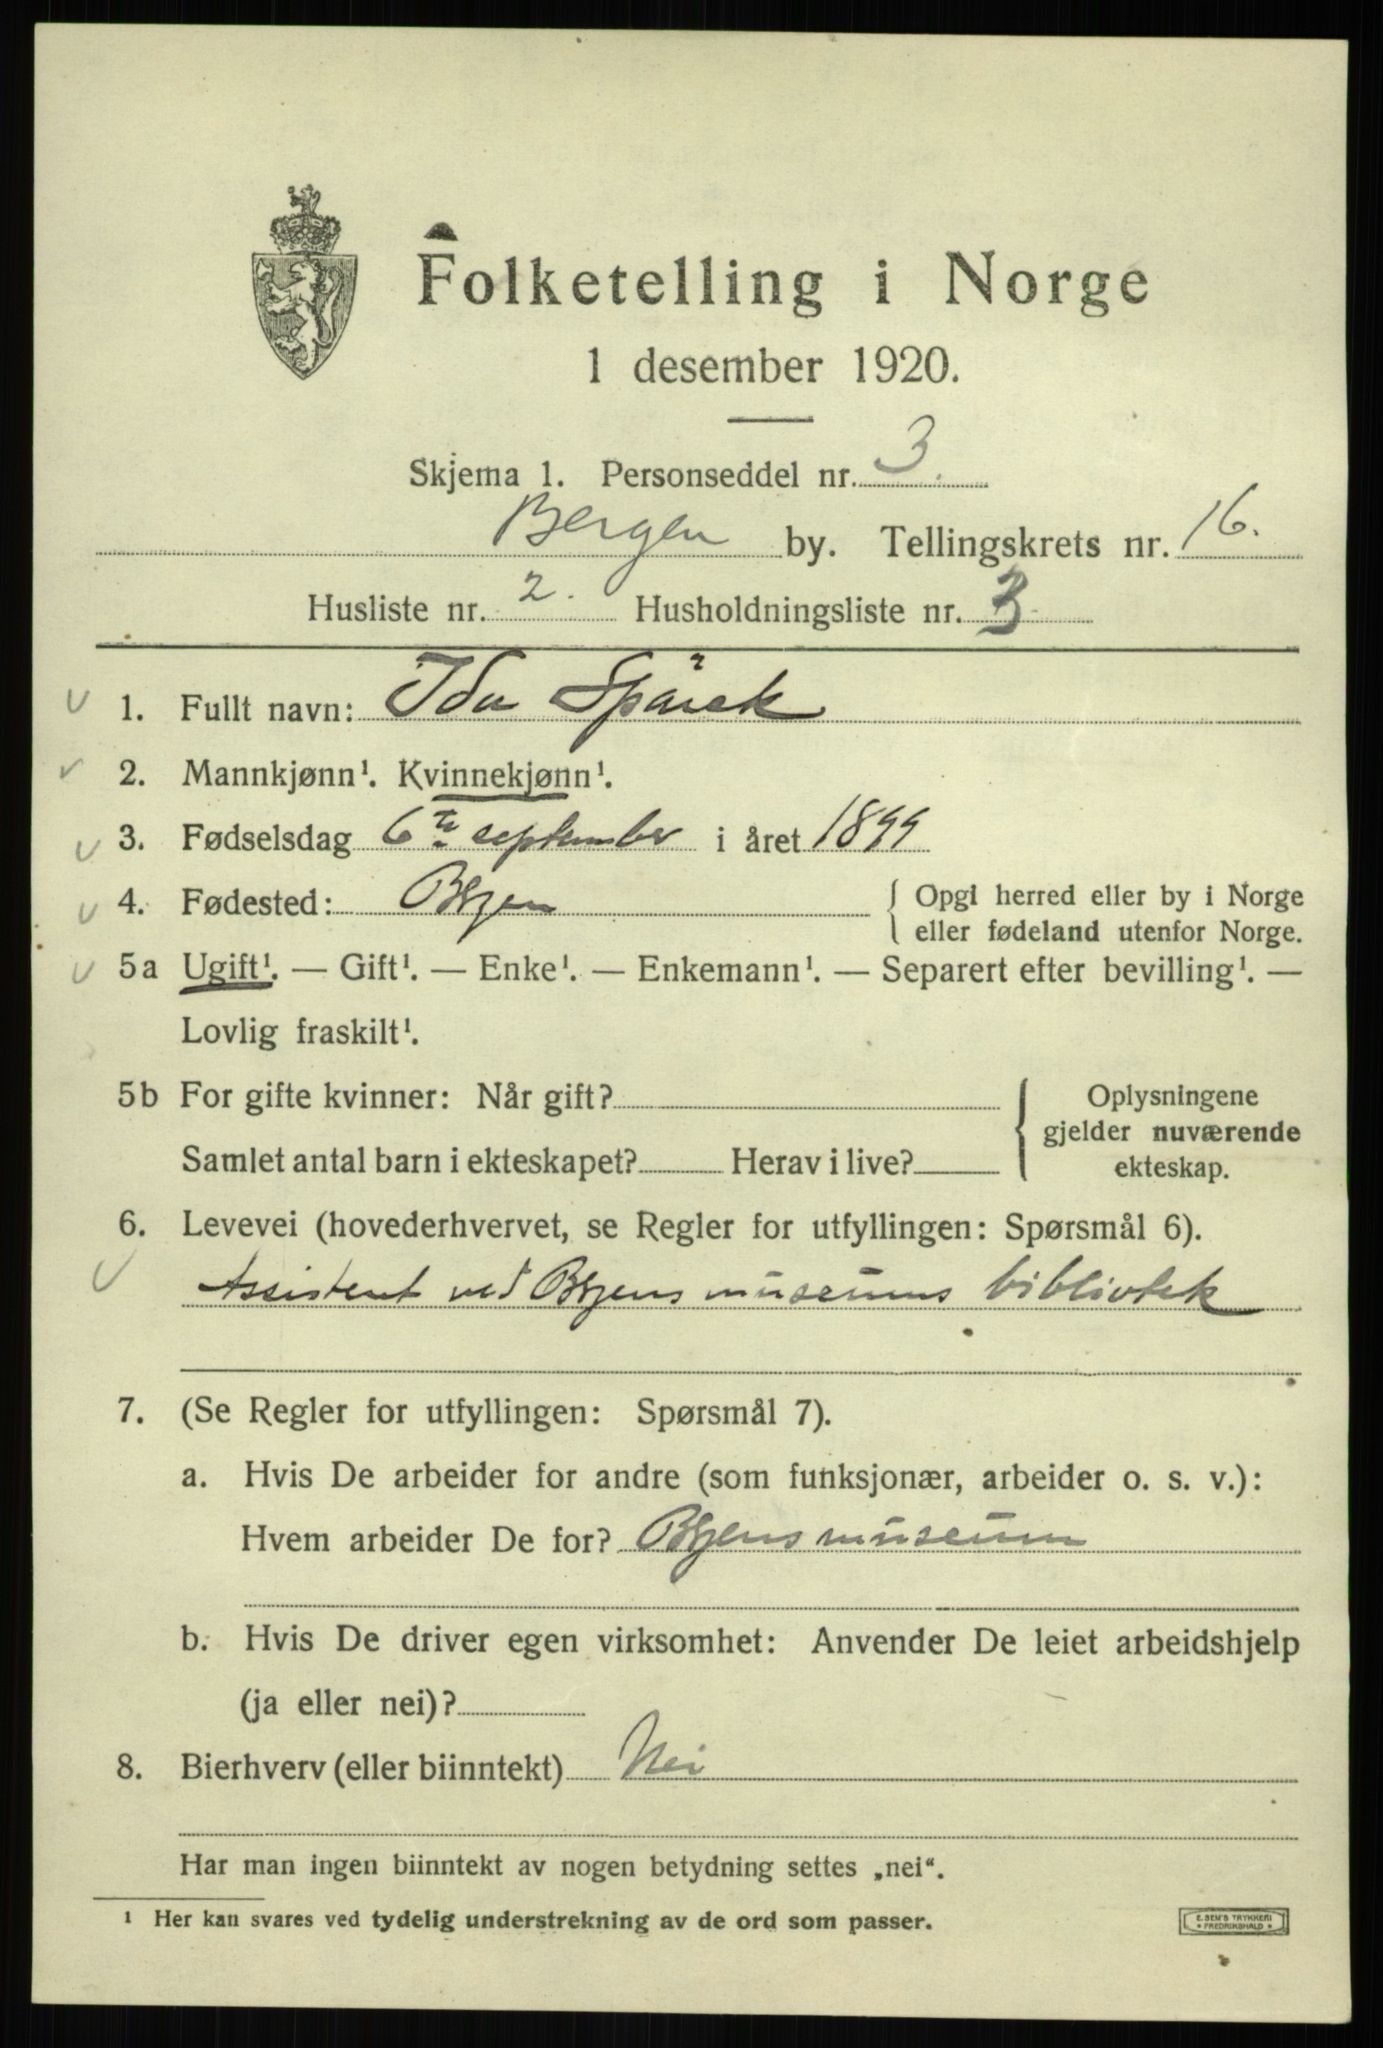 Folketelling i Norge
1 desember 1920.
Skjema 1. Personseddel nr. 3.
Bergen by. Tellingskrets nr. 16.
Husliste nr. 2. Husholdningsliste nr. 3
1. Fullt navn: Ida Spärck
2. Mannkjønn¹. Kvinnekjønn¹.
3. Fødselsdag 6te september i året 1899
4. Fødested: Bergen { Opgi herred eller by i Norge
eller fødeland utenfor Norge.
5a Ugift¹. — Gift¹. — Enke¹. — Enkemann¹. — Separert efter bevilling¹. —
Lovlig fraskilt¹.
5b For gifte kvinner: Når gift? { Oplysningene
gjelder nuværende
Samlet antal barn i ekteskapet? Herav i live? ekteskap.
6. Levevei (hovederhvervet, se Regler for utfyllingen: Spørsmål 6).
Assistent ved Bergens museums bibliotek
7. (Se Regler for utfyllingen: Spørsmål 7).
a. Hvis De arbeider for andre (som funksjonær, arbeider o. s. v.):
Hvem arbeider De for? Bergens museum
b. Hvis De driver egen virksomhet: Anvender De leiet arbeidshjelp
(ja eller nei)?
8. Bierhverv (eller biinntekt) Nei
Har man ingen biinntekt av nogen betydning settes „nei“.
¹ Her kan svares ved tydelig understrekning av de ord som passer.
E. SEM'S TRYKKERI
* FREDRIKSHALD *